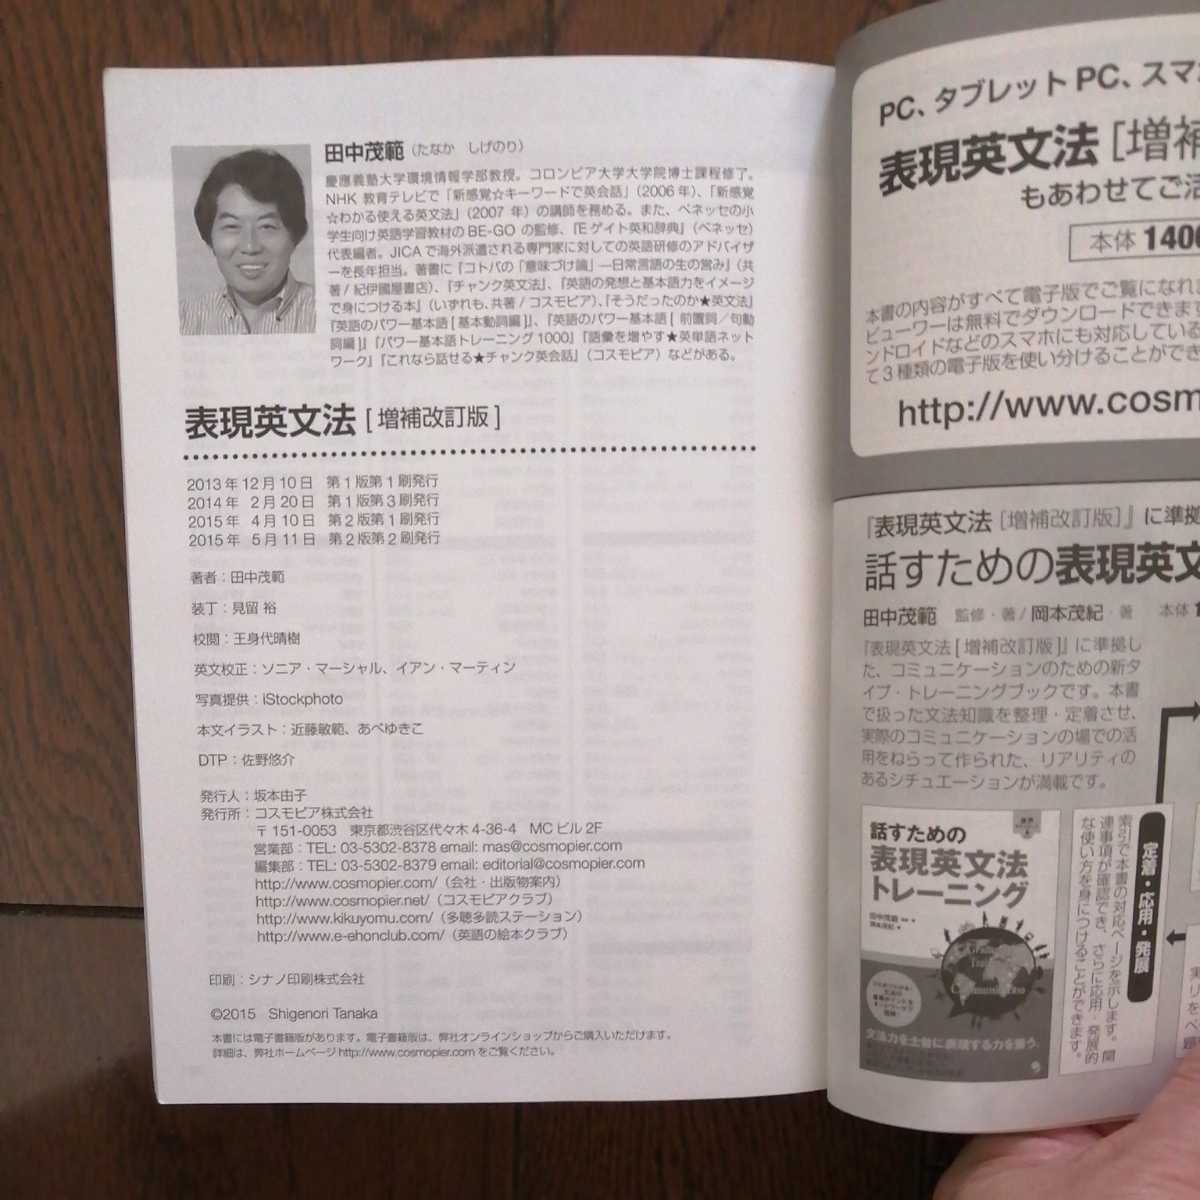 田中茂範(たなか しげのり)
慶應義塾大学環境情報学部教授。コロンビア大学大学院博士課程修了。
NHK 教育テレビで「新感覚☆キーワードで英会話」(2006 年)、「新感覚
☆わかる使える英文法」(2007 年)の講師を務める。また、ベネッセの小
学生向け英語学習教材の BE-GO の監修、『E ゲイト英和辞典』(ベネッセ)
代表編者。JICA で海外派遣される専門家に対しての英語研修のアドバイザ
ーを長年担当。著書に『コトバの「意味づけ論」―日常言語の生の営み』(共
著/紀伊國屋書店)、『チャンク英文法』、『英語の発想と基本語力をイメージ
で身につける本』(いずれも、共著/コスモピア)、『そうだったのか★英文法』
『英語のパワー基本語[基本動詞編]』、『英語のパワー基本語[ 前置詞/句動
詞編]』『パワー基本語トレーニング1000』『語彙を増やす★英単語ネット
ワーク』『これなら話せる★チャンク英会話』(コスモピア)などがある。
表現英文法[増補改訂版]
2013 年 12 月 10 日 第 1 版第 1 刷発行
2014 年 2 月 20 日 第 1 版第 3 刷発行
2015 年 4 月 10 日 第 2 版第 1 刷発行
2015 年 5 月 11 日 第 2 版第 2 刷発行
著者:田中茂範
装丁:見留 裕
校閲:王身代晴樹
英文校正:ソニア・マーシャル、イアン・マーティン
写真提供:iStockphoto
本文イラスト:近藤敏範、あべゆきこ
DTP:佐野悠介
発行人:坂本由子
発行所:コスモピア株式会社
〒 151-0053 東京都渋谷区代々木 4-36-4 MC ビル 2F
営業部:TEL: 03-5302-8378 email: mas@cosmopier.com
編集部:TEL: 03-5302-8379 email: editorial@cosmopier.com
http://www.cosmopier.com/(会社・出版物案内)
http://www.cosmopier.net/(コスモピアクラブ)
http://www.kikuyomu.com/(多聴多読ステーション)
http://www.e-ehonclub.com/(英語の絵本クラブ)
印刷:シナノ印刷株式会社
©2015 Shigenori Tanaka
本書には電子書籍版があります。電子書籍版は、弊社オンラインショップからご購入いただけます。
詳細は、弊社ホームページ http://www.cosmopier.com をご覧ください。
PC、タブレット PC、スマ
表現英文法[増補
もあわせてご活
本体 1400
本書の内容がすべて電子版でご覧になれま
ビューワーは無料でダウンロードできます
ンドロイドなどのスマホにも対応している
て 3 種類の電子版を使い分けることができ
http://www.cosm
『表現英文法[増補改訂版]』に準拠
話すための表現英文
田中茂範 監修・著/岡本茂紀・著 本体
『表現英文法[増補改訂版]』に準拠し
た、コミュニケーションのための新タ
イプ・トレーニングブックです。本書
で扱った文法知識を整理・定着させ、
実際のコミュニケーションの場での活
用をねらって作られた、リアリティの
あるシチュエーションが満載です。
話すための
表現英文法
トレーニング
文法力を土台に表現する力を養う。
定着・応用・発展
索引で本書の対応ページを示します。関
連事項が確認でき、さらに応用・発展的
な使い方を身につけることができます。